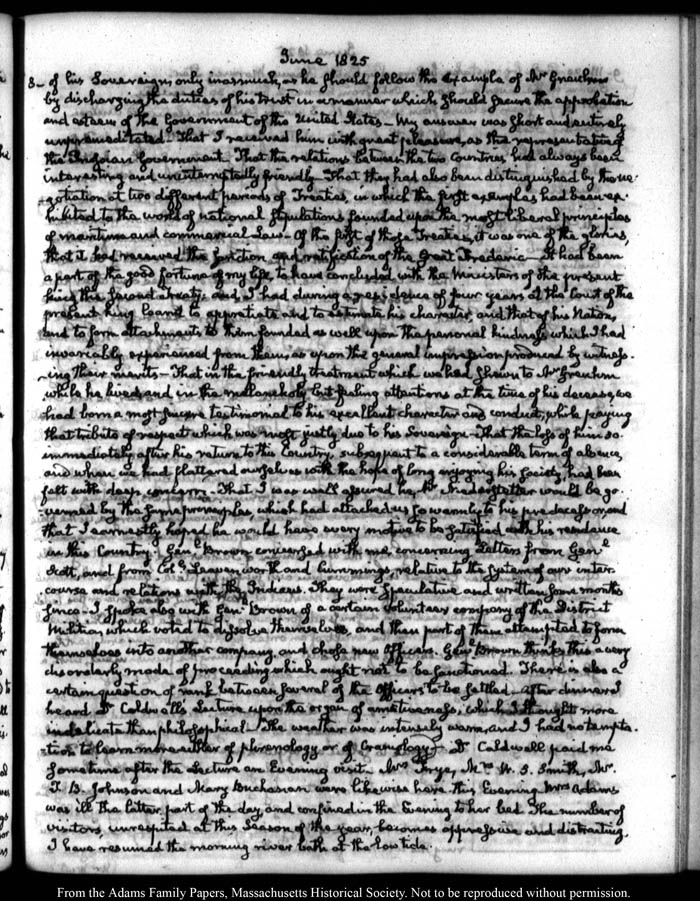 June 1825
8— of his Sovereign, only inasmuch, as he should follow the example of Mr Greuhm
by discharging the duties of his trust in a manner which should secure the approbation
and esteem of the Government of the United States— My answer was short and entirely
unpremeditated. That I received him with great pleasure, as the representative of
the Prussian Government. That the relations between the two Countries had always been
interesting and uninterruptedly friendly. That they had also been distinguished by the ne-
gotiation at two different periods of Treaties, in which the first examples had been ex-
hibited to the world of national stipulations founded upon the most liberal principles
of maritime and commercial Law— Of the first of those Treaties, it was one of the glories,
that it had received the sanction and ratification of the Great Frederic— It had been
a part of the good fortune of my life to have concluded with the Ministers of the present
king the second treaty; and I had during a residence of four years at the Court of the
present king learnt to appreciate and to estimate his character, and that of his Nation,
and to form attachments to them founded as well upon the personal kindness which I had
invariably experienced from them, as upon the general impression produced by witness-
ing their merits— That in the friendly treatment which we had shewn to Mr Greuhm
while he lived, and in the melancholy but feeling attentions at the time of his decease, we
had born a most sincere testimonial to his excellent character and conduct, while paying
that tribute of respect which was most justly due to his Sovereign— That the loss of him so
immediately after his return to this Country, subsequent to a considerable term of absence,
and when we had flattered ourselves with the hope of long enjoying his society, had been
felt with deep concern— That I was well assured he, Mr Niederstetter would be go-
verned by the same principles which had attached us so warmly to his predecessor, and
that I earnestly hoped he would have every motive to be satisfied with his residence
in this Country. Genl. Brown conversed with me concerning Letters from Genl.
Scott, and from Cols. Leavenworth and Cummings, relative to the system of our inter-
course and relations with the Indians. They were speculative and written some months
since. I spoke also with Genl. Brown of a certain volunteer company of the District
Militia which voted to dissolve themselves, and then part of them attempted to form
themselves into another company and chose new Officers. Genl. Brown thinks this a very
disorderly mode of proceeding which ought not to be sanctioned. There is also a
certain question of rank between several of the Officers to be settled. After dinner I
heard Dr Caldwell's Lecture upon the organ of amativeness, which I thought more
indelicate than philosophical— The weather was intensely warm, and I had no tempta-
tion to learn more either of phrenology or of Craniology— Dr Caldwell paid me
sometime after the Lecture an Evening visit. Mrs Frye, Mrs W. S. Smith, Mr.
T. B. Johnson and Mary Buchanan were likewise here this Evening Mrs Adams
was ill the latter part of the day, and confined in the Evening to her bed. The number of
visitors unrespited at this Season of the year, becomes oppressive and distracting.
I have resumed the morning river bath at the low tide.
From the Adams Family Papers, Massachusetts Historical Society. Not to be reproduced without permission.